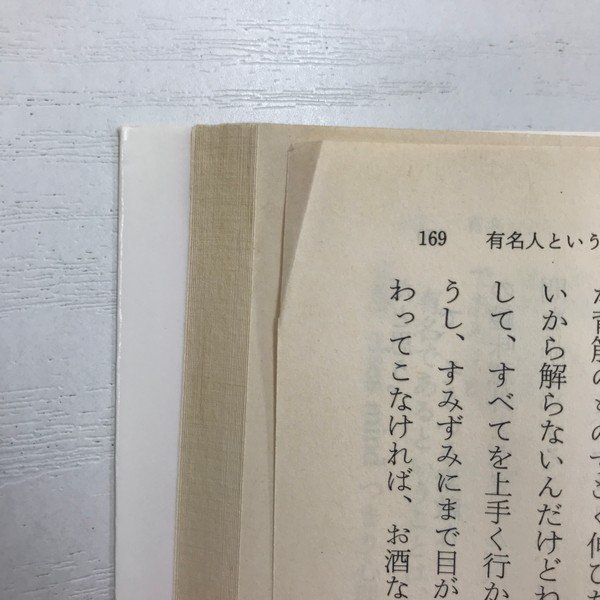 169 有名人という
いから解らないんだけどわ
して、すべてを上手く行か
うし、すみずみにまで目が
わってこなければ、お酒な